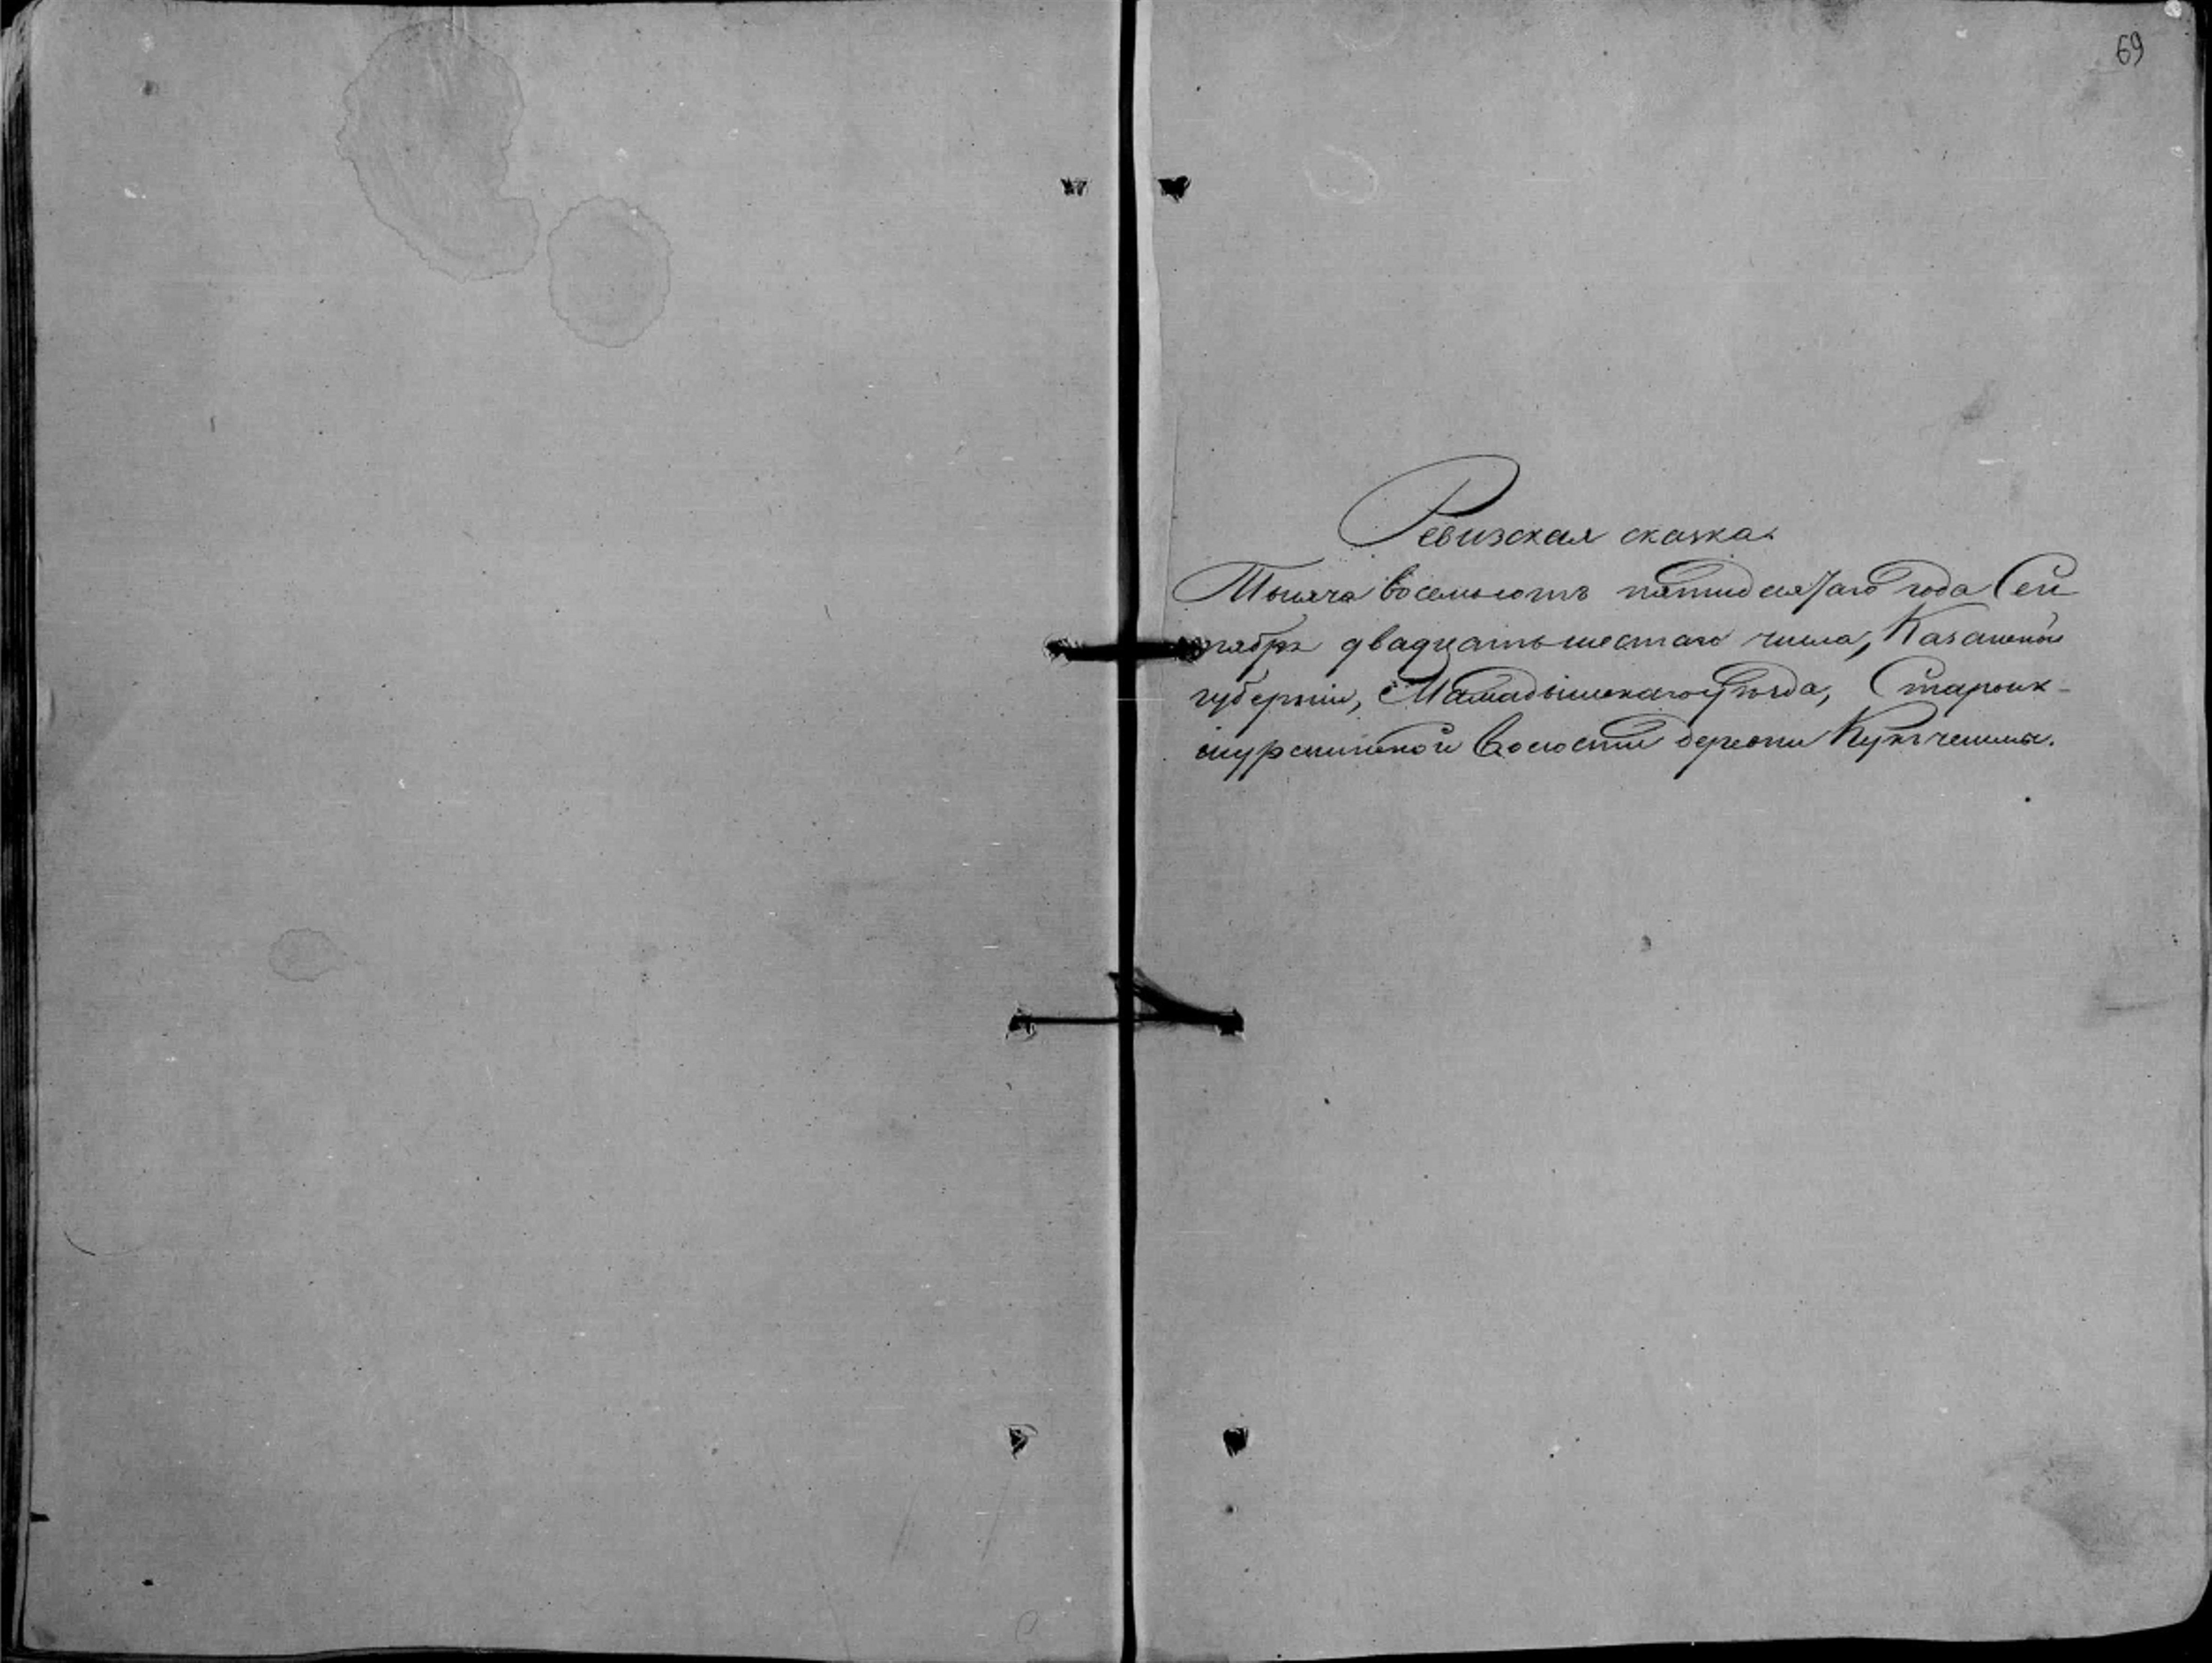 69
Ревизская сказка.
Тысяча восемьсотъ пятидесятаго года Сен
тября двадцать шестаго числа, Казанской
губернiи, Мамадышскаго уѣзда, Старьик-
шурминской волости деревни